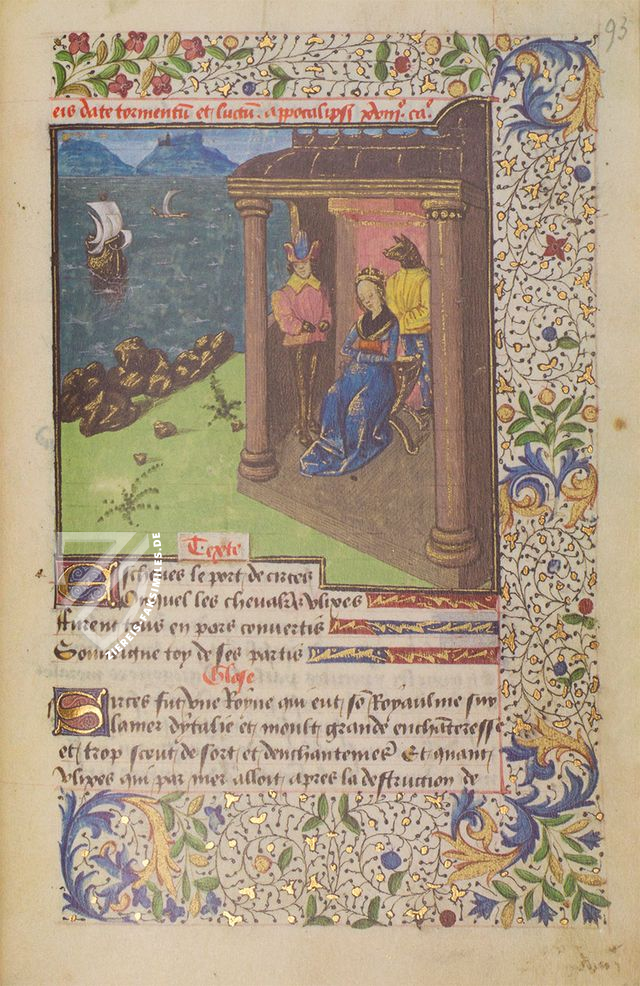 93
eis date tormentum et luctum. appocalipsi xviii.º ca.º
Texte
Escheues le port de circes
Ou quel les cheual'rs vlixes
Furent tous en pors conuertis
Souuiengne toy de ses partis
Glose
Circes fut vne Royne qui eut son Royaulme sur
la mer dytalie et moult grande enchanteresse
et trop sceut de sort et denchantemens Et quant
vlixes qui par mer alloit apres la destruction de
ZIEREIS-FAKSIMILES.DE